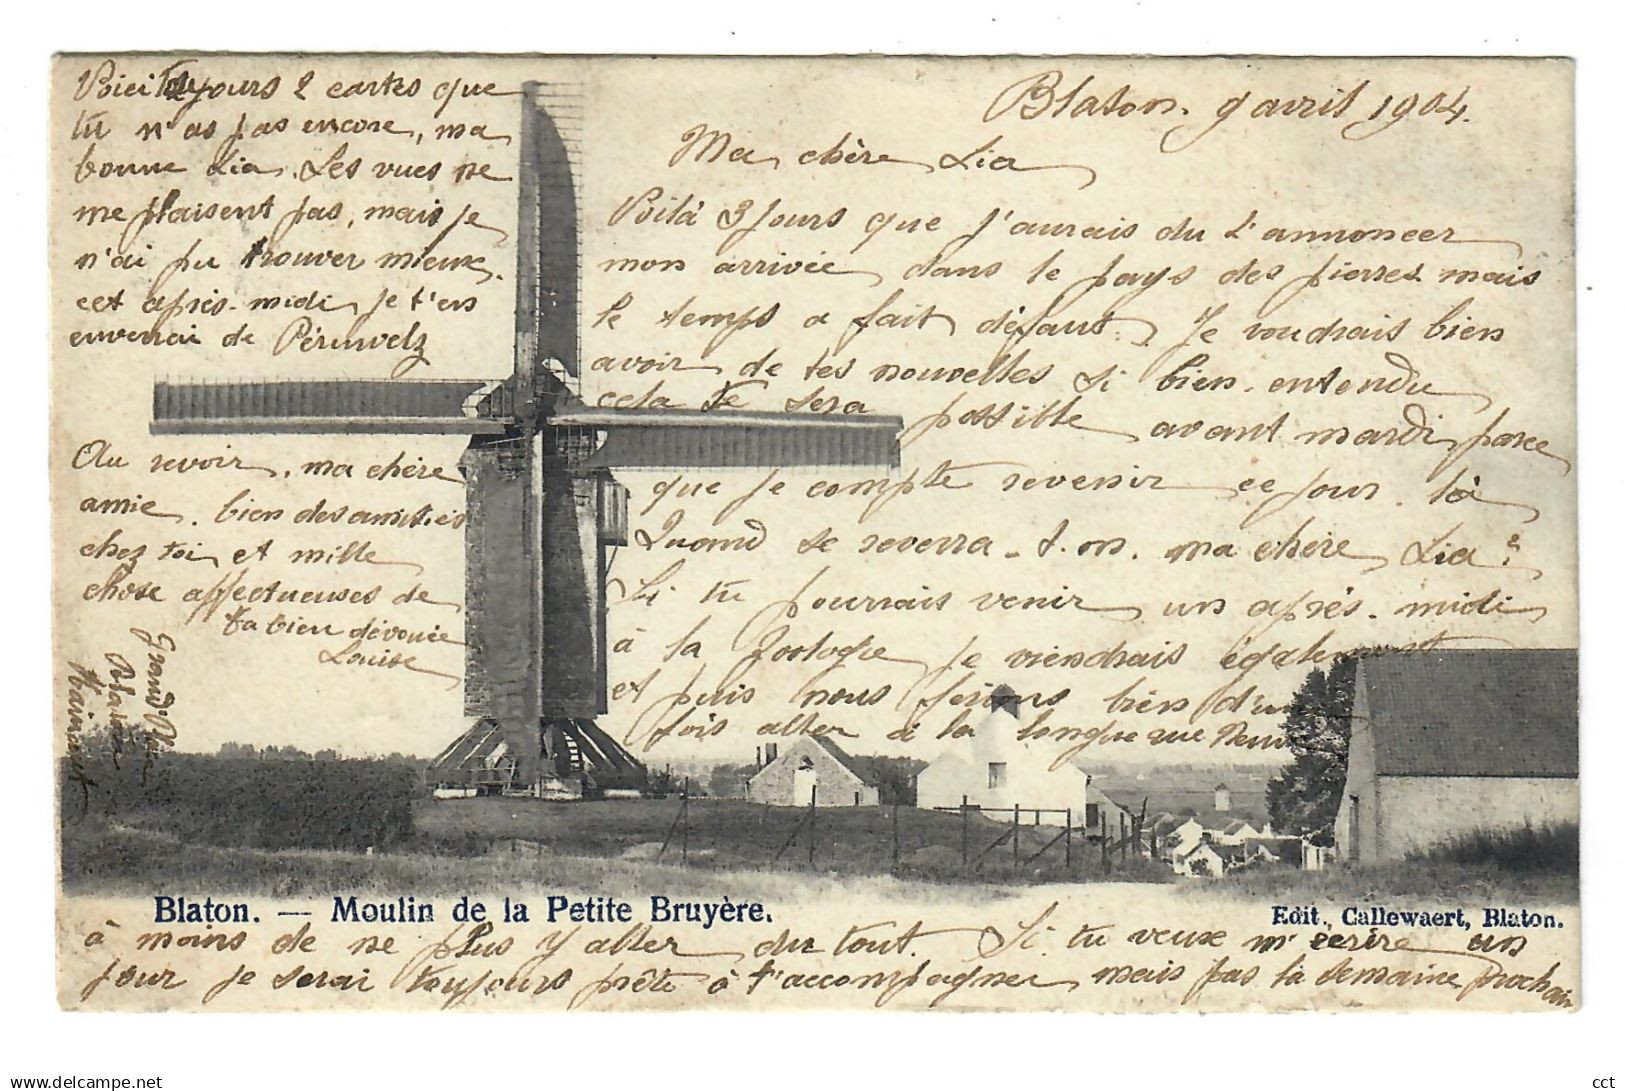 Blaton. 9 avril 1904.
Ma chère Lia
Voilà 3 jours que j'aurais du t'annoncer
mon arrivée dans le pays des pierres mais
le temps a fait défaut. Je voudrais bien
avoir de tes nouvelles si bien entendu
cela te sera possible avant mardi parce
que je compte revenir ce jour là
Quand se reverra-t-on. ma chère Lia?
Si tu pourrais venir un après-midi
à la Zoologie je viendrais également
et puis nous ferions bien d'une
fois aller à la longue rue Neuve
à moins de ne plus y aller du tout. Si tu veux m'écrire un
jour je serai toujours prête à t'accompagner mais pas la semaine prochain
Voici toujours 2 cartes que
tu n'as pas encore, ma
bonne Lia. Les vues ne
me plaisent pas, mais je
n'ai pu trouver mieux.
cet après-midi je t'en
enverrai de Péruwelz
Au revoir, ma chère
amie. bien des amitiés
chez toi et mille
chose affectueuses de
ta bien dévouée
Louise
Grand'Place
Blaton
Hainaut
Blaton. — Moulin de la Petite Bruyère.
Edit. Callewaert, Blaton.
delcampe.net
cct